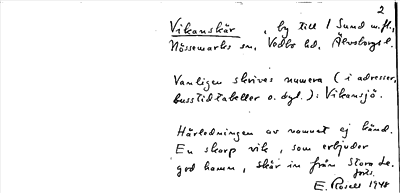 2
Vikanskär, by till 1 Sund m.fl.,
Nössemarks sn, Vedbo hd, Älvsborgs l.
Vanligen skrives numera (i adresser,
busstidtabeller o. dyl.): Vikansjö.
Härledningen av namnet ej känd.
En skarp vik, som erbjuder
god hamn, skär in från Stora Le.
E. Rosell 1948